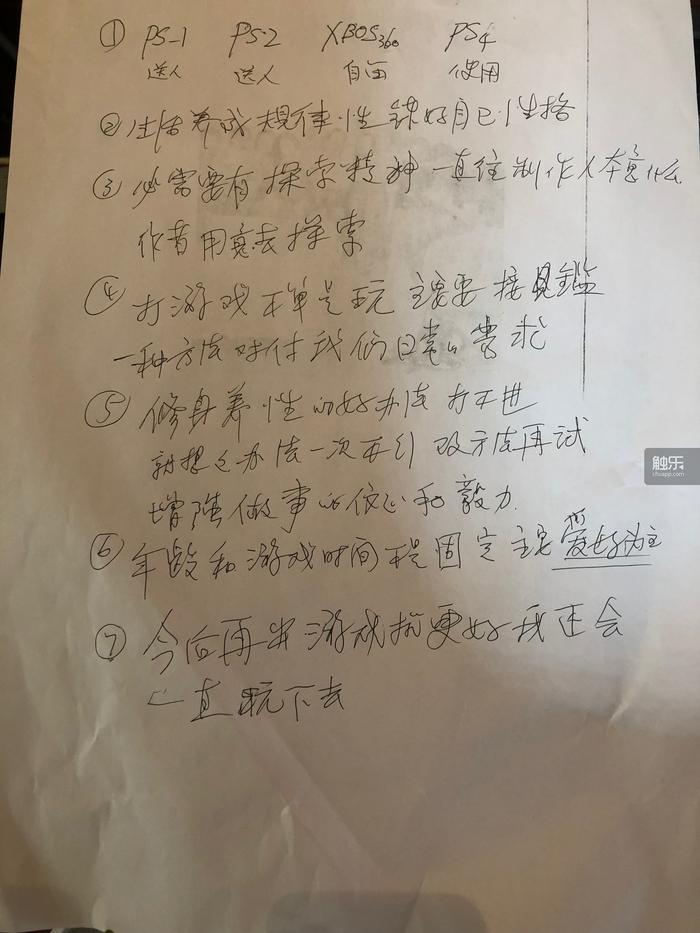 ① PS-1 PS-2 XBOS360 PS4
送人 送人 自由 使用
② 生活养成规律性 锻好自己性格
③ 必需要有探索精神 一直往制作人本意什么
作者用意去探索
④ 打游戏不单是玩 主要要接见鑑
一种方法对付我们日常の需求
⑤ 修身养性の好办法 打不进
就想之办法一次不行 改方法再试
增强做事の信心和毅力.
⑥ 年龄和游戏时间不是固定主要爱好为主
⑦ 今后再出游戏机更好我还会
一直玩下去
触乐
chuapp.com